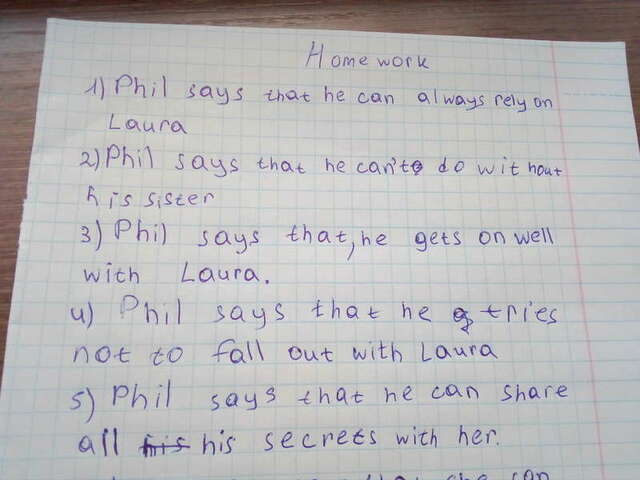 Home work
1) Phil says that he can always rely on
Laura
2) Phil says that he can't do without
his sister
3) Phil says that, he gets on well
with Laura.
4) Phil says that he tries
not to fall out with Laura
5) Phil says that he can share
all his his secrets with her.
that she can